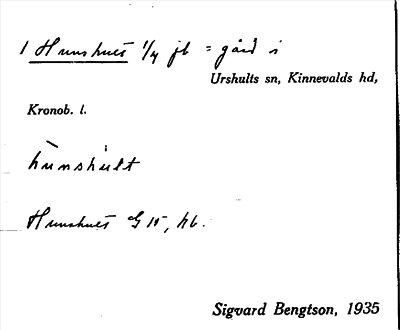 1 Hunshult 1/4 jb = gård i
Urshults sn, Kinnevalds hd,
Kronob. l.
hùnshúlt
Hunshult G 15, hb.
Sigvard Bengtson, 1935